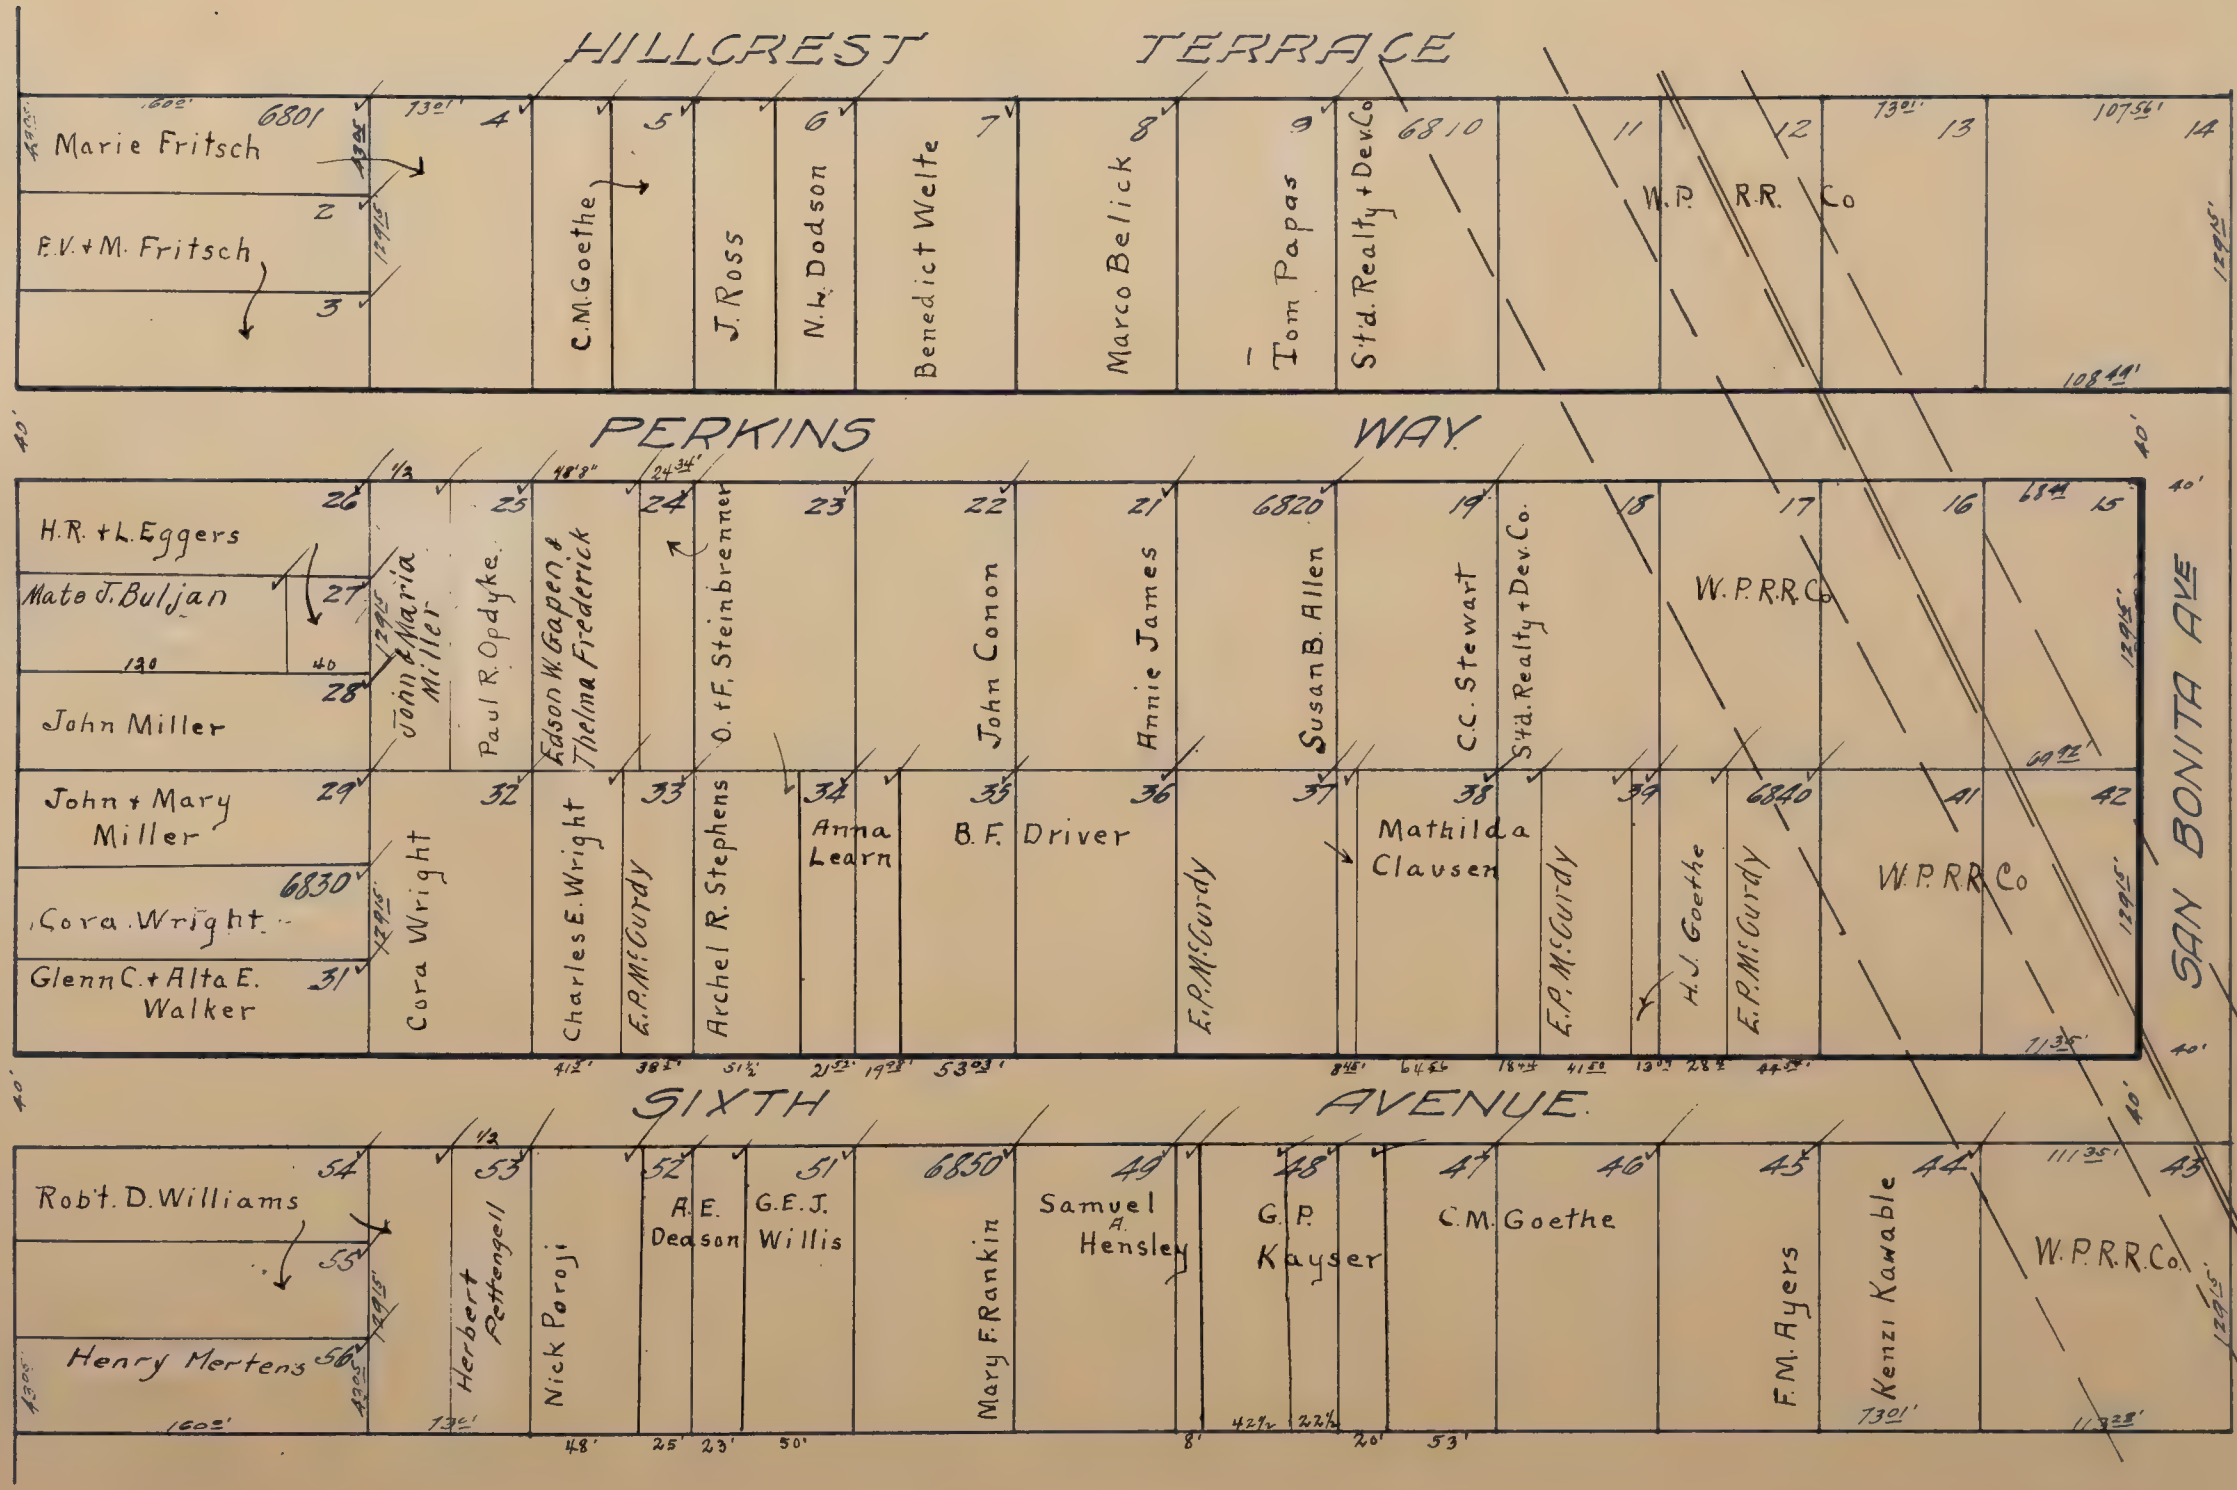 HILLCREST TERRACE
160 00' 6801 73 01' 4 5 6 7 8 9 6810 11 12 73 01' 13 107 56' 14
43 05'
Marie Fritsch
2
129 15'
F.V. + M. Fritsch
3
C.M. Goethe
J. Ross
N.L. Dodson
Benedict Welte
Marco Belick
Tom Papas
St'd. Realty + Dev. Co
W.P. R.R. Co
129 15'
108 49'
40'
PERKINS WAY.
40'
1/2 48'8" 24 34'
26 25 24 23 22 21 6820 19 18 17 16 68 49 15
40'
H.R. + L. Eggers
Mato J. Buljan
27
120 40
28
John Miller
129 15'
John & Maria
Miller
Paul R. Opdyke.
Edson W. Gapen &
Thelma Frederick
O. + F. Steinbrenner
John Conon
Annie James
Susan B. Allen
C.C. Stewart
St'd. Realty + Dev. Co.
W.P.R.R. Co
129 15'
69 92'
SAN BONITA AVE
29 32 33 34 35 36 37 38 39 6840 41 42
John + Mary
Miller
6830
Cora Wright
129 15'
Glenn C. + Alta E.
Walker
31
Cora Wright
Charles E. Wright
E.P. McCurdy
Archel R. Stephens
Anna
Learn
B.F. Driver
E.P. McCurdy
Mathilda
Clausen
E.P. McCurdy
H.J. Goethe
E.P. McCurdy
W.P.R.R. Co
129 15'
71 35'
40'
51 1/2 21 52' 19 98' 53 03' 8 45' 64 56 18 44 41 50
40'
SIXTH AVENUE.
40'
1/2
54 53 52 51 6850 49 48 47 46 45 44 111 35' 43
Rob't. D. Williams
55
129 15'
Henry Mertens 56
43 05'
43 05'
160 00' 73 01'
Herbert
Pettengell
Nick Poroji
A.E.
Deason
G.E.J.
Willis
Mary F. Rankin
Samuel
A.
Hensley
G.P.
Kayser
C.M. Goethe
F.M. Ayers
Kenzi Kawable
W.P.R.R. Co.
129 15'
42 1/2 22 1/2 73 01' 113 28'
48' 25' 23' 50' 8' 20' 53'